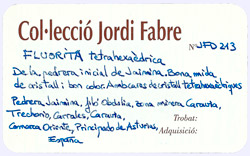 Col·lecció Jordi Fabre
Nº JFD213
FLUORITA tetrahexaèdrica
De la pedrera inicial de Jaimina. Bona mida
de cristall i bon color. Amb cares de cristall tetrahexaèdriques
Pedrera Jaimina, filó Obdulia, zona minera Caravia,
Treborio, Carrales, Caravia,
Comarca Oriente, Principado de Asturias,
España
Trobat:
Adquisició: